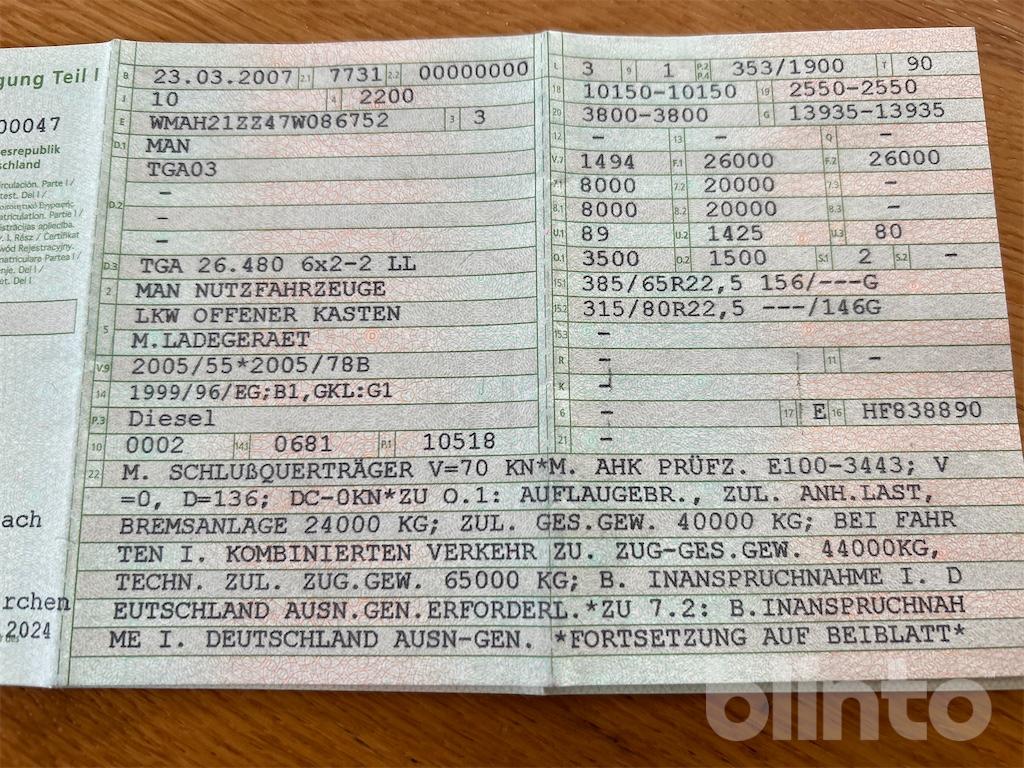 gung Teil I
00047
esrepublik
schland
ach
rchen
.2024
B 23.03.2007 2.1 7731 2.2 00000000
J 10 4 2200
E WMAH21ZZ47W086752 3 3
D.1 MAN
TGA03
D.2 –
–
–
D.3 TGA 26.480 6x2-2 LL
2 MAN NUTZFAHRZEUGE
5 LKW OFFENER KASTEN
M.LADEGERAET
V.9 2005/55*2005/78B
14 1999/96/EG;B1,GKL:G1
P.3 Diesel
10 0002 14.1 0681 P.1 10518
L 3 9 1 P.2 P.4 353/1900 T 90
18 10150-10150 19 2550-2550
20 3800-3800 G 13935-13935
12 – 13 – Q –
V.7 1494 F.1 26000 F.2 26000
7.1 8000 7.2 20000 7.3 –
8.1 8000 8.2 20000 8.3 –
U.1 89 U.2 1425 U.3 80
O.1 3500 O.2 1500 S.1 2 S.2 –
15.1 385/65R22,5 156/---G
15.2 315/80R22,5 ---/146G
15.3 –
R – 11 –
K –
6 – 17 E 16 HF838890
21 –
22 M. SCHLUßQUERTRÄGER V=70 KN*M. AHK PRÜFZ. E100-3443; V
=0, D=136; DC-0KN*ZU O.1: AUFLAUGEBR., ZUL. ANH.LAST,
BREMSANLAGE 24000 KG; ZUL. GES.GEW. 40000 KG; BEI FAHR
TEN I. KOMBINIERTEN VERKEHR ZU. ZUG-GES.GEW. 44000KG,
TECHN. ZUL. ZUG.GEW. 65000 KG; B. INANSPRUCHNAHME I. D
EUTSCHLAND AUSN.GEN.ERFORDERL.*ZU 7.2: B.INANSPRUCHNAH
ME I. DEUTSCHLAND AUSN-GEN. *FORTSETZUNG AUF BEIBLATT*
blinto